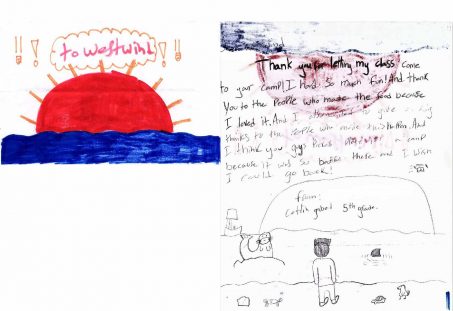 to westwind
Thank you for letting my class come
to your camp! I had so much fun! And thank
you to the people who made the food because
I loved it. And I to give
thanks to the people who made this happen. And
I think you guys a camp
because it was so there and I wish
I could go back!
from:
5th grade.